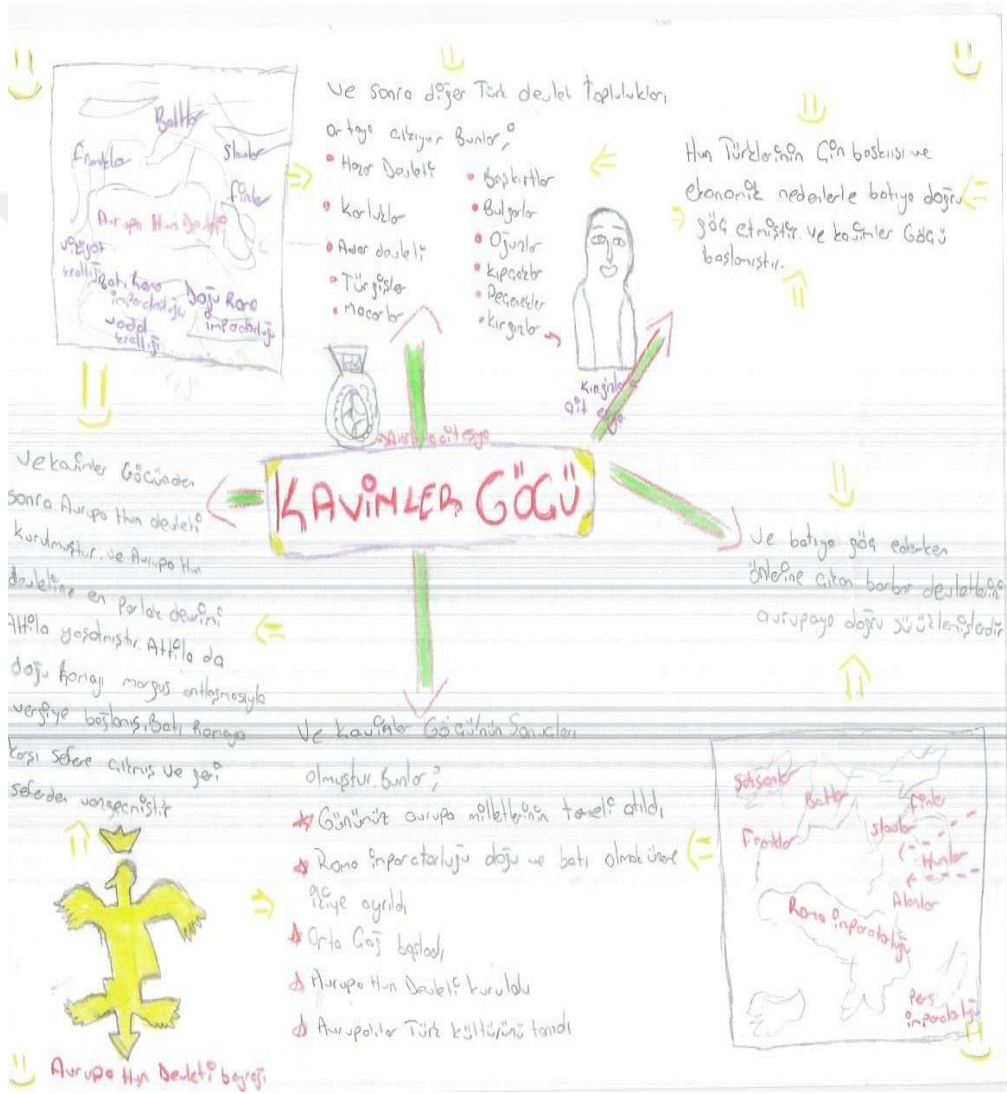 Baltlar
Franklar
Slavlar
Finler
Avrupa Hun Devleti
Vizigot
krallığı
Batı Roma
imparatorluğu
Doğu Roma
imparatorluğu
krallığı
ve sonra diğer Türk devlet toplulukları
ortaya çıkıyor Bunlar;
Hazar Devleti
Karluklar
Avar devleti
Türgişler
Macarlar
Başkırtlar
Bulgarlar
Oğuzlar
Kıpçaklar
Peçenekler
Kırgızlar
Hun Türklerinin Çin baskısı ve
ekonomik nedenlerle batıya doğru
göç etmiştir. ve kavimler Göçü
başlamıştır.
Kırgızlara
ait eşya
ait eşya
KAVİMLER GÖÇÜ
Ve kavimler Göçünden
sonra Avrupa Hun devleti
kurulmuştur. ve Avrupa Hun
devletine en parlak devrini
Attila yaşatmıştır. Attila da
doğu Romayı margus antlaşmasıyla
vergiye bağlamış, Batı Romaya
karşı sefere çıkmış ve geri
seferden vazgeçmiştir
Ve batıya göç ederken
önlerine çıkan barbar devletlerini
avrupaya doğru sürüklemişlerdir
Ve kavimler Göçü'nün Sonuçları
olmuştur. Bunlar;
Günümüz avrupa milletlerinin temeli atıldı
Roma imparatorluğu doğu ve batı olmak üzere
ikiye ayrıldı
Orta Çağ başladı
Avrupa Hun Devleti kuruldu
Avrupalılar Türk kültürünü tanıdı
Saksonlar
Baltlar
Finler
Franklar
slavlar
Hunlar
Alanlar
Roma imparatorluğu
Pers
imparatorluğu
Avrupa Hun Devleti bayrağı